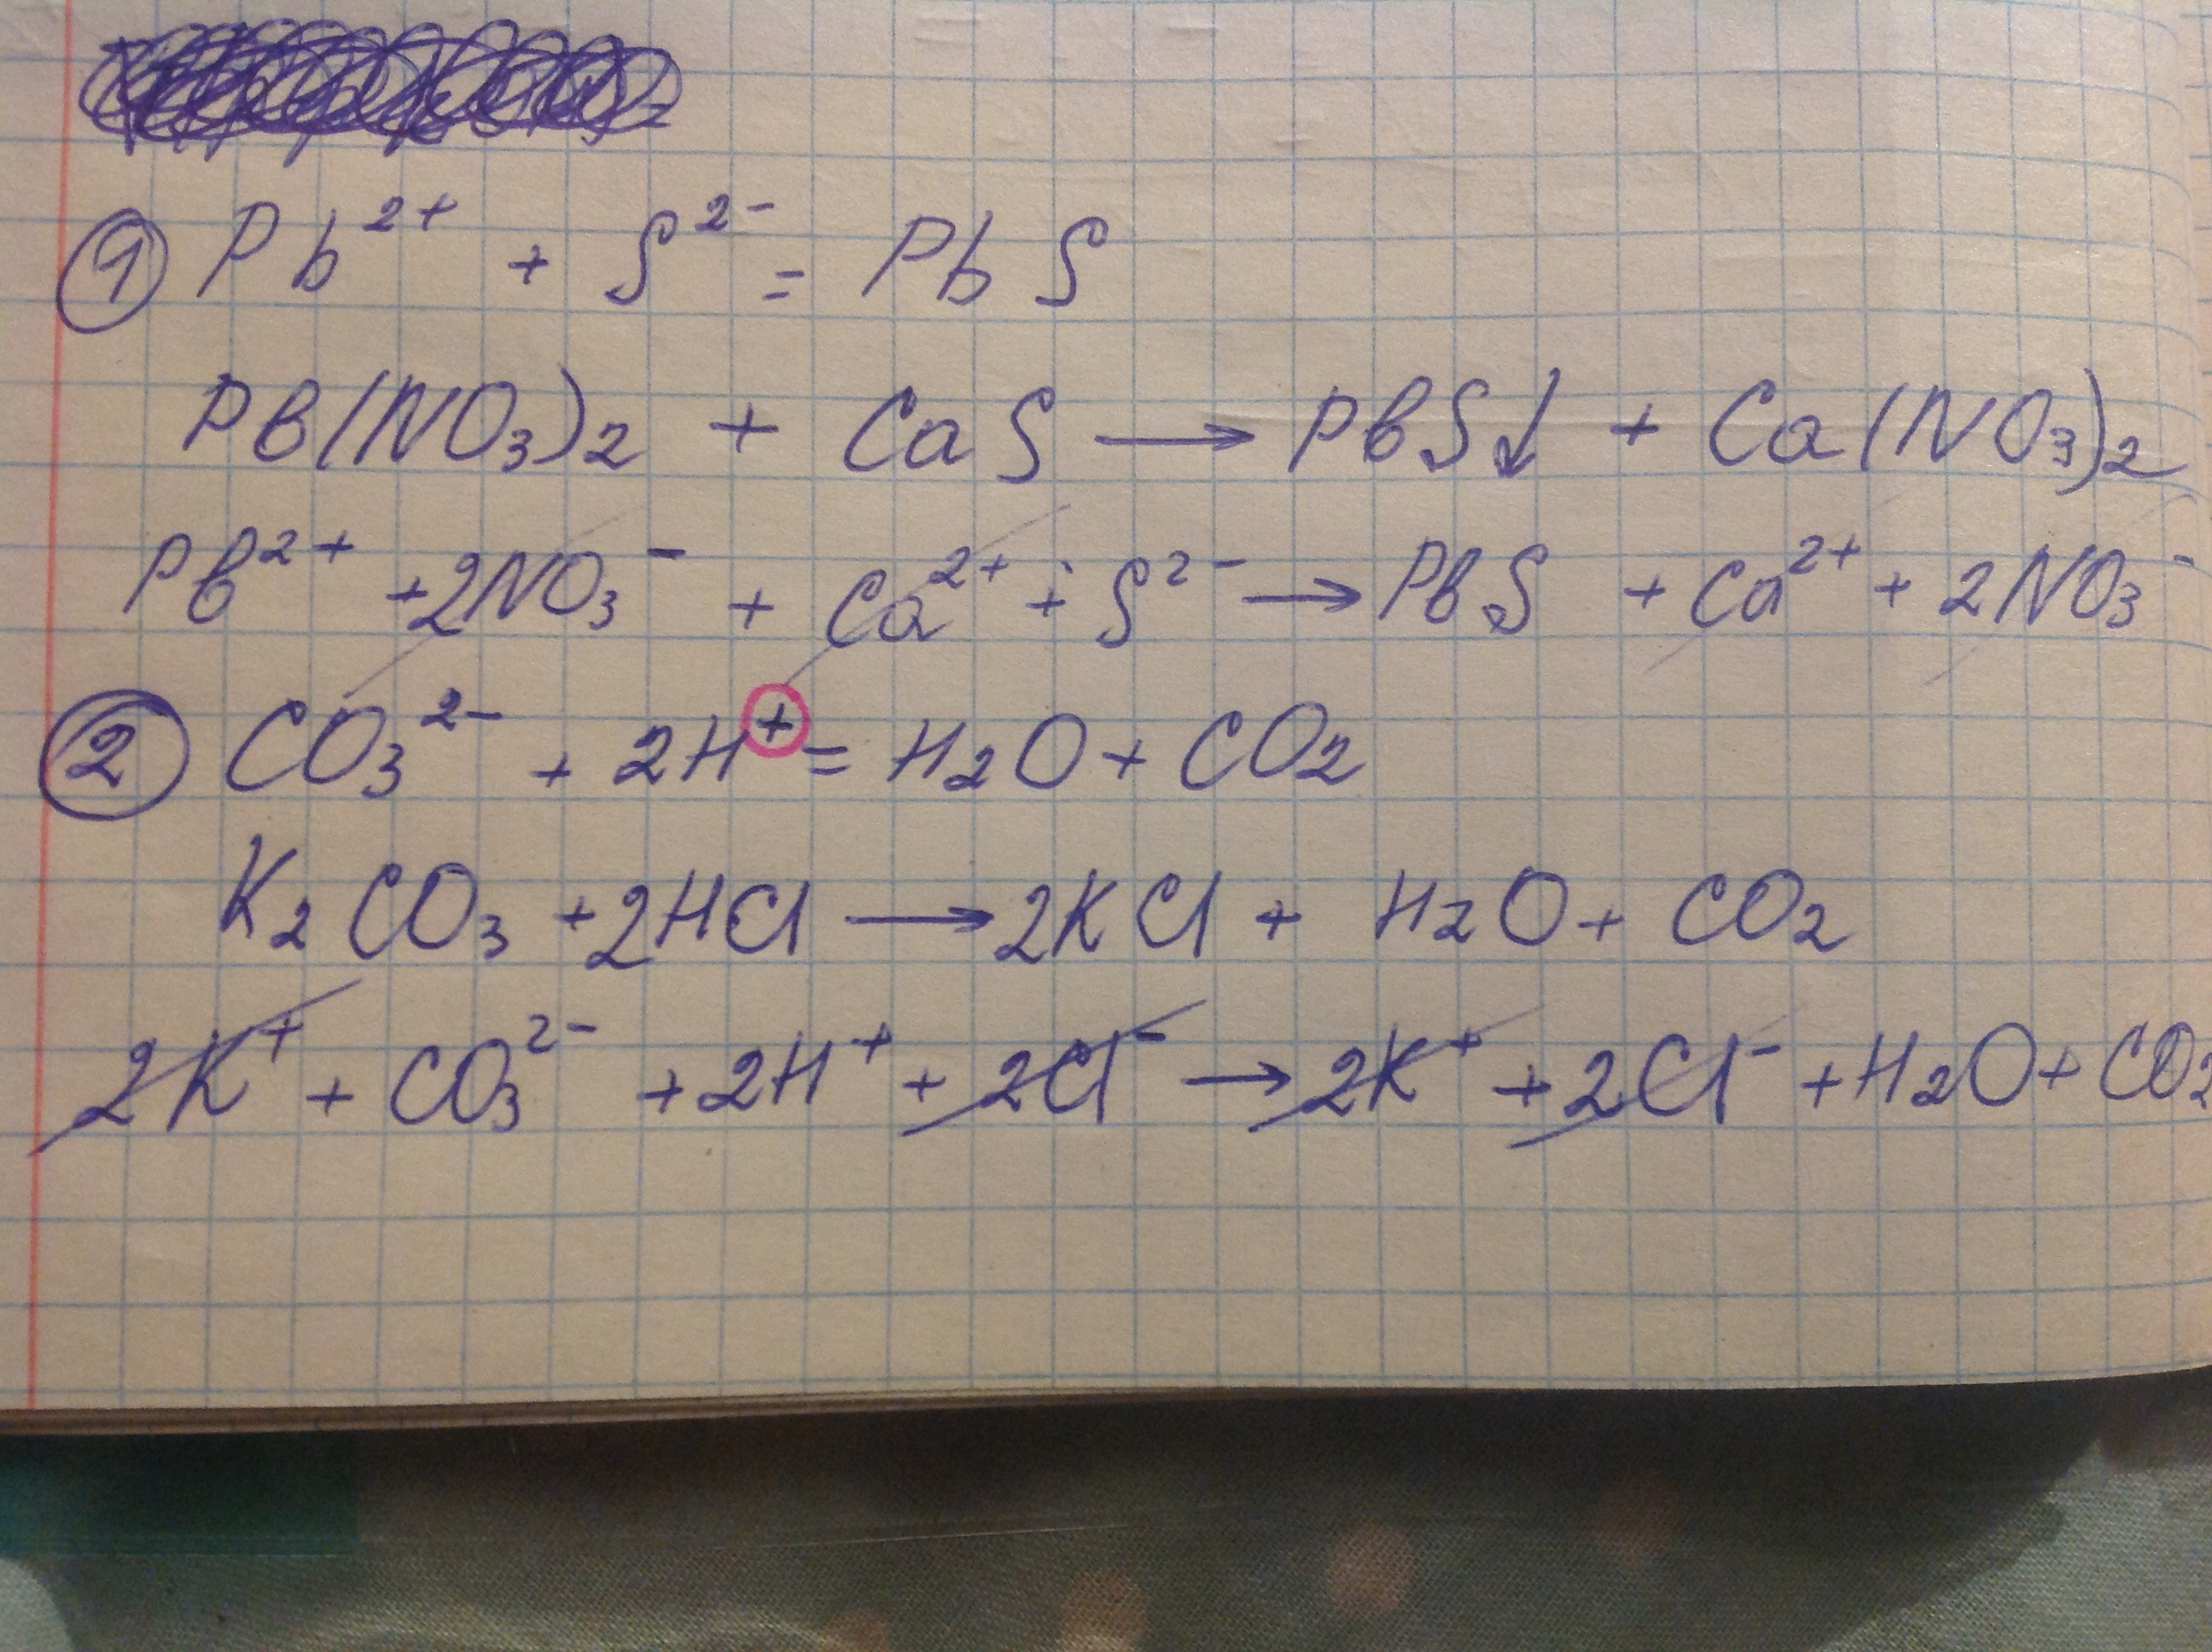 ① Pb²⁺ + S²⁻ = PbS
Pb(NO₃)₂ + CaS → PbS↓ + Ca(NO₃)₂
Pb²⁺ + 2NO₃⁻ + Ca²⁺ + S²⁻ → PbS + Ca²⁺ + 2NO₃⁻
② CO₃²⁻ + 2H⁺ = H₂O + CO₂
K₂CO₃ + 2HCl → 2KCl + H₂O + CO₂
2K⁺ + CO₃²⁻ + 2H⁺ + 2Cl⁻ → 2K⁺ + 2Cl⁻ + H₂O + CO₂